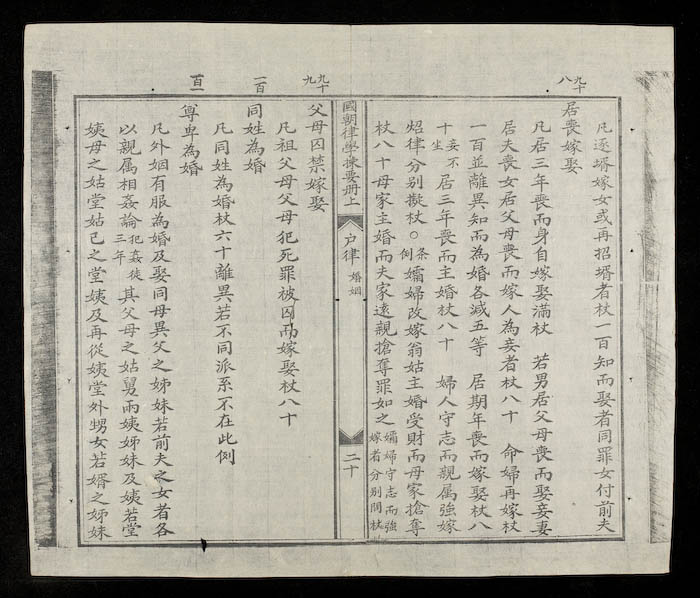 九十八
凡逐壻嫁女或再招壻者杖一百知而娶者同罪女付前夫
居喪嫁娶
凡居三年喪而身自嫁娶滿杖 若男居父母喪而娶妾妻
居夫喪女居父母喪而嫁人為妾者杖八十 命婦再嫁杖
一百並離異知而為婚各減五等 居期年喪而嫁娶杖八
十妾不坐 居三年喪而主婚杖八十 婦人守志而親属強嫁
炤律分別擬杖○條例孀婦改嫁翁姑主婚受財而母家搶奪
杖八十母家主婚而夫家遠親搶奪罪如之孀婦守志而強嫁者分别問杖
國朝律學揀要册上 户律 婚姻 二十
九十九
父母囚禁嫁娶
凡祖父母父母犯死罪被囚而嫁娶杖八十
一百
同姓為婚
凡同姓為婚杖六十離異若不同派系不在此例
百一
尊卑為婚
凡外姻有服為婚及娶同母異父之姊妹若前夫之女者各
以親属相姦論犯姦徒三年 其父母之姑舅兩姨姊妹及姨若堂
姨母之姑堂姑己之堂姨及再從姨堂外甥女若壻之姊妹